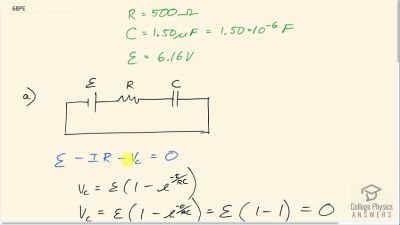 68PE
R = 500 Ω
C = 1.50 μF = 1.50×10⁻⁶ F
ℰ = 6.16 V
a)
ℰ R C
ℰ - IR - Vc = 0
Vc = ℰ (1 - e^(-t/RC))
Vc = ℰ (1 - e^(-0/RC)) = ℰ (1 - 1) = 0
College Physics
ANSWERS